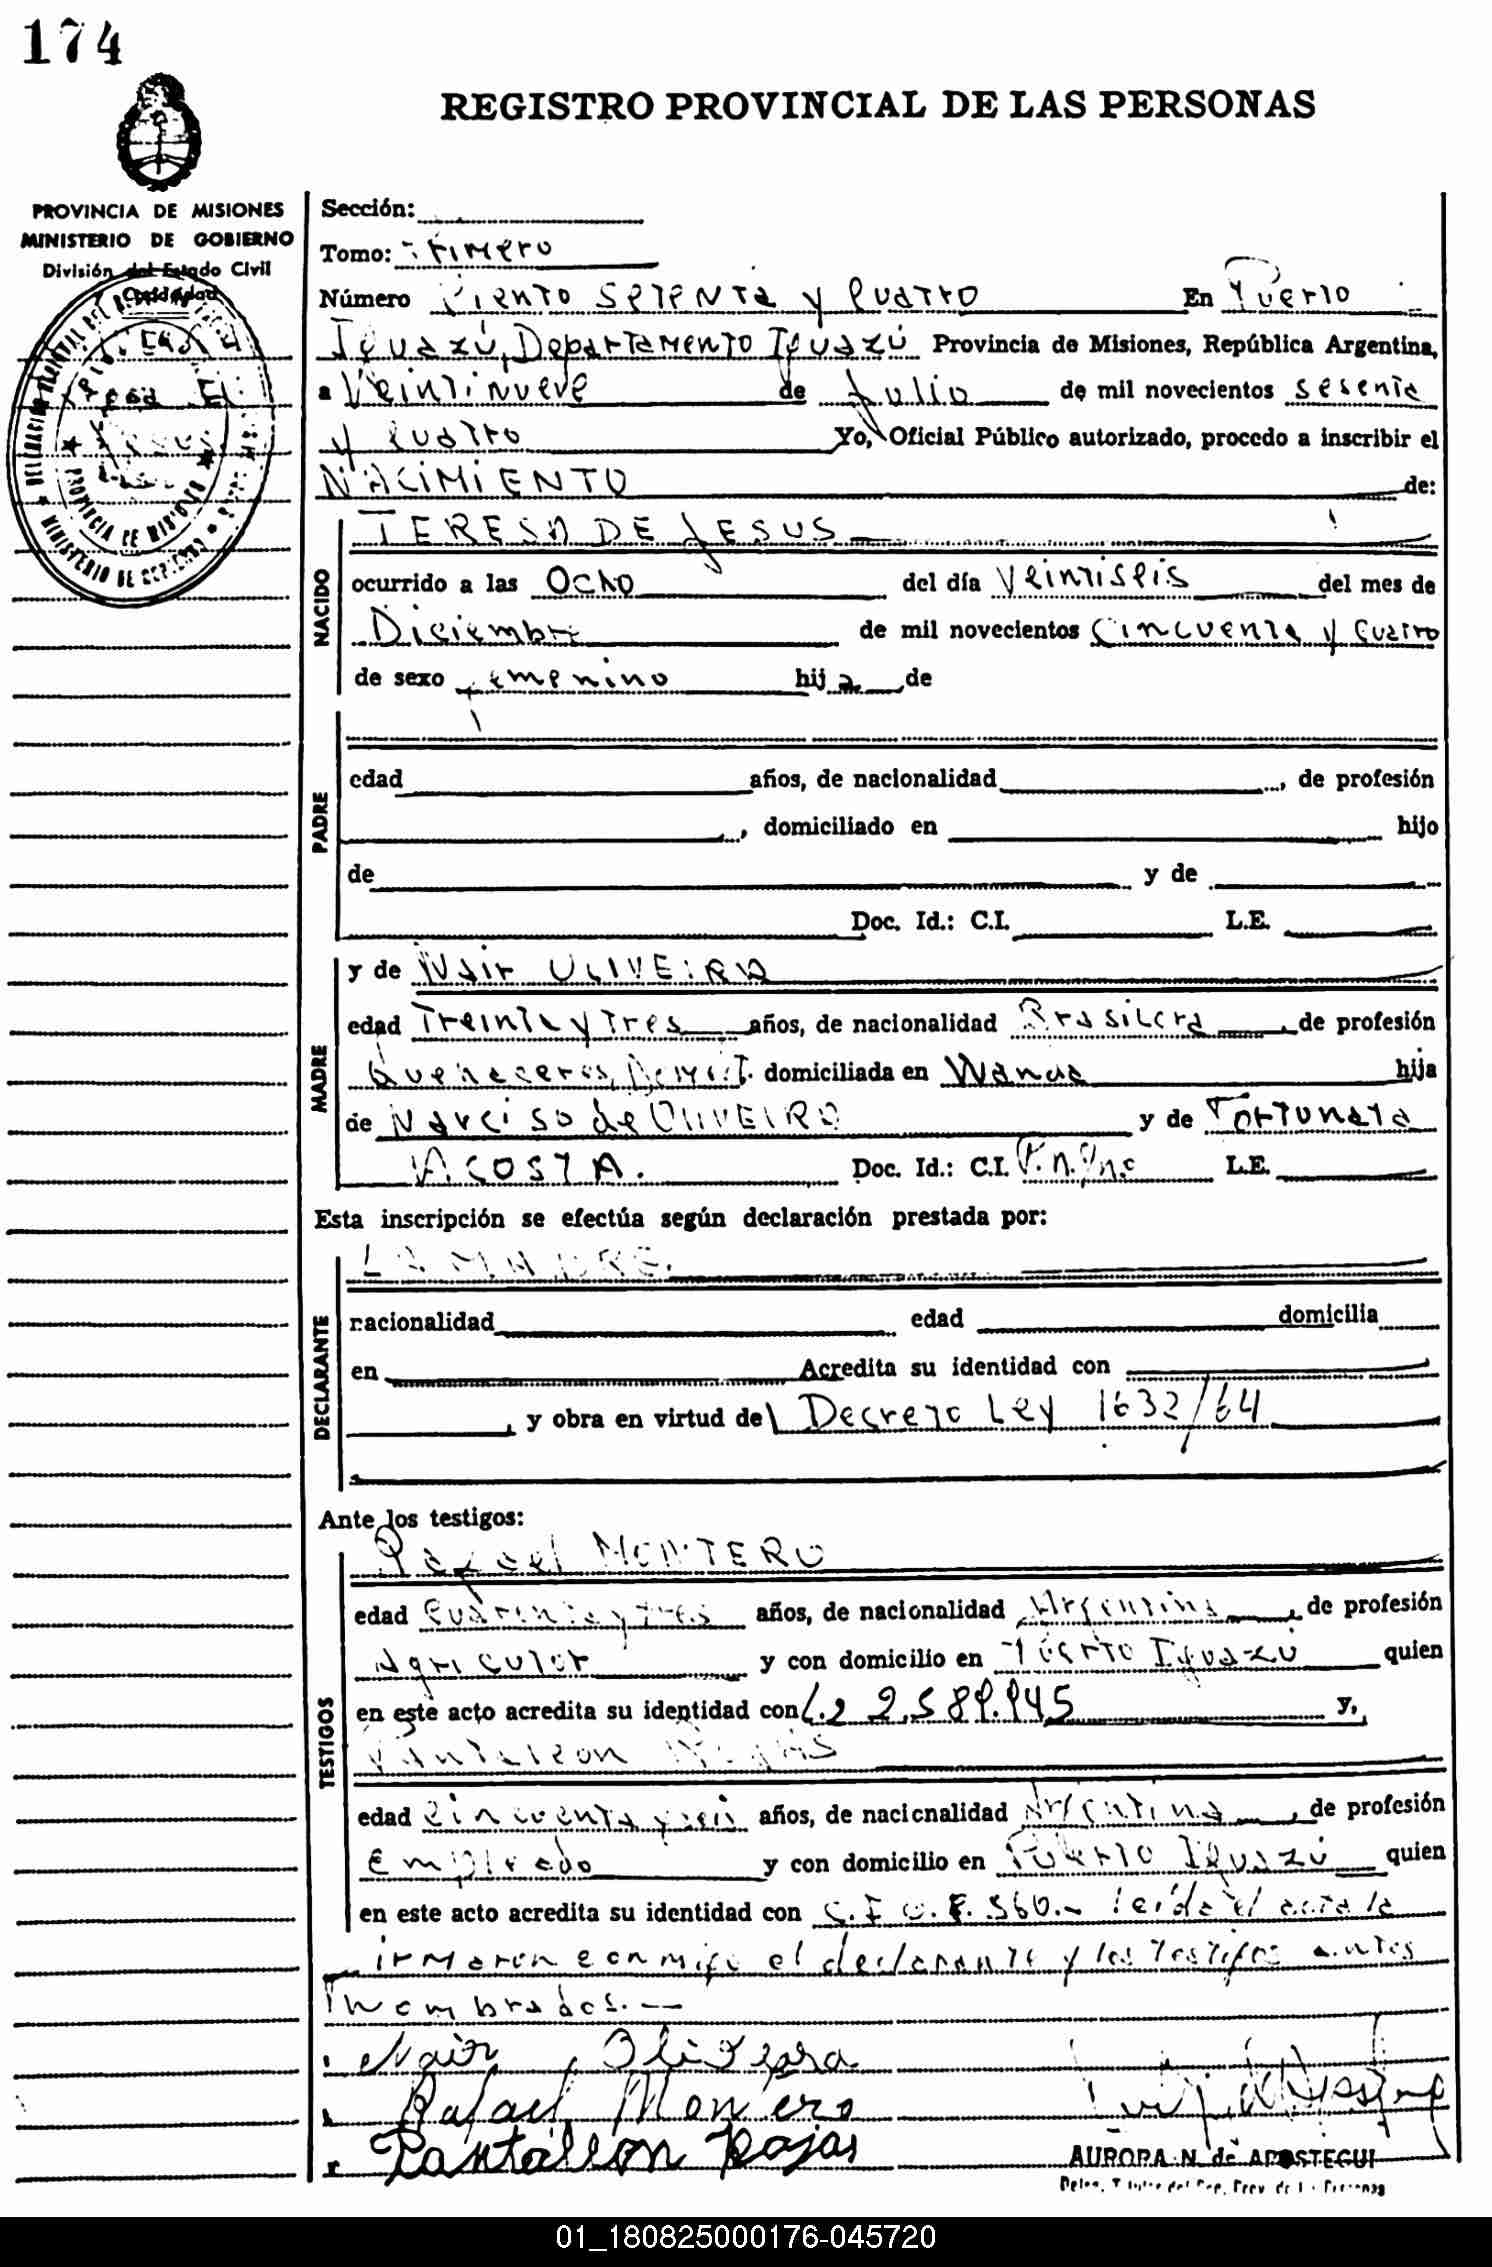 174
REGISTRO PROVINCIAL DE LAS PERSONAS
PROVINCIA DE MISIONES
MINISTERIO DE GOBIERNO
División del Estado Civil
Capacidad
Sección:
Tomo: Primero
Número Ciento setenta y cuatro En Puerto
Iguazú, Departamento Iguazú Provincia de Misiones, República Argentina,
a Veintinueve de Julio de mil novecientos sesenta
y cuatro Yo, Oficial Público autorizado, procedo a inscribir el
NACIMIENTO de:
NACIDO
TERESA DE JESUS
ocurrido a las Ocho del día Veintiseis del mes de
Diciembre de mil novecientos cincuenta y cuatro
de sexo femenino hija de
PADRE
edad años, de nacionalidad , de profesión
, domiciliado en hijo
de y de
Doc. Id.: C.I. L.E.
MADRE
y de Nair OLIVEIRA
edad Treinta y Tres años, de nacionalidad Brasilera , de profesión
Quehaceres Domést. domiciliada en Wanda hija
de Narciso de OLIVEIRA y de Fortunata
ACOSTA. Doc. Id.: C.I. L.E.
Esta inscripción se efectúa según declaración prestada por:
DECLARANTE
LA MADRE.
nacionalidad edad domicilia
en Acredita su identidad con
, y obra en virtud de Decreto Ley 1632/64
Ante los testigos:
TESTIGOS
Rafael MONTERO
edad cuarenta y tres años, de nacionalidad Argentina , de profesión
Agricultor y con domicilio en Puerto Iguazú quien
en este acto acredita su identidad con 2.589.945 y,
Pantaleon ROJAS
edad cincuenta y seis años, de nacionalidad Argentina , de profesión
Empleado y con domicilio en Puerto Iguazú quien
en este acto acredita su identidad con C.I. 560.- leida el acta la
firmaron conmigo el declarante y los testigos antes
nombrados.-
Nair Oliveira
Rafael Montero
Pantaleon Rojas
AURORA N. de APOSTEGUI
01_180825000176-045720